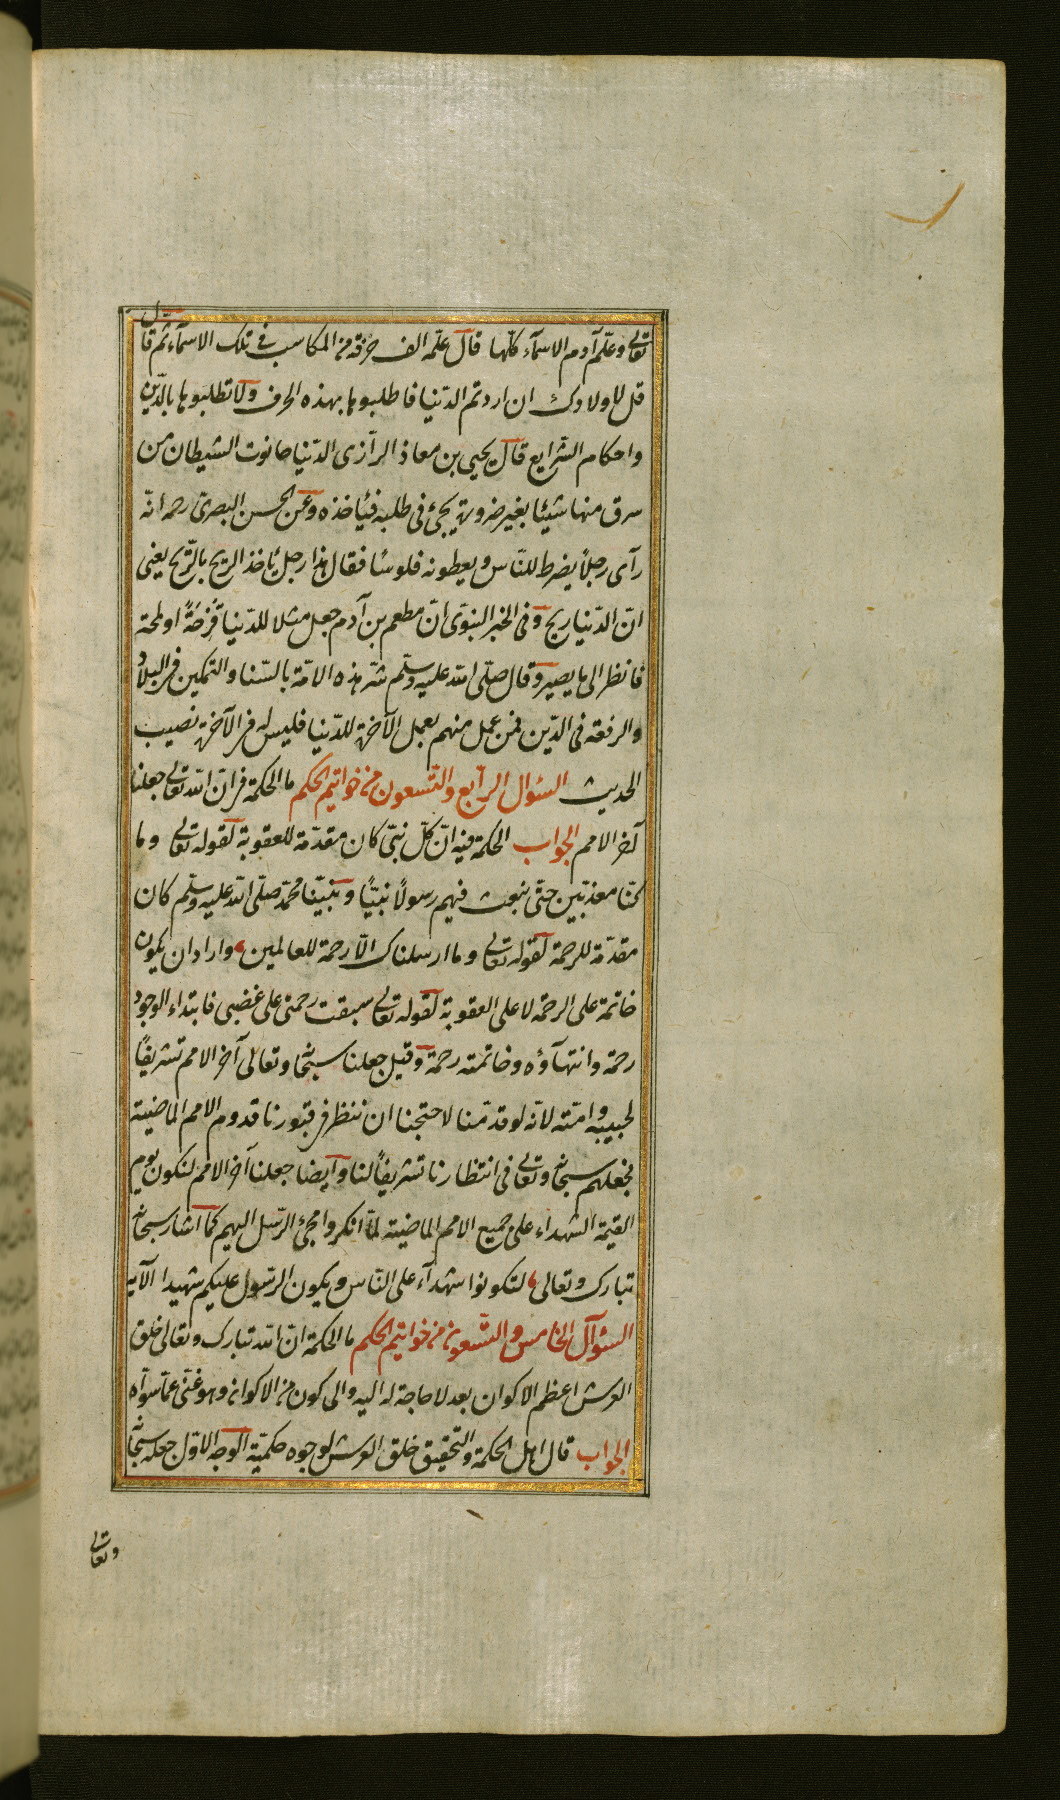 تعالى وعلّم آدم الاسمآء كلّها قال علّمه الف حرفة من المكاسب فى تلك الاسمآء ثم قال
قل لاولادك ان اردتم الدّنيا فاطلبوها بهذه الحرف ولا تطلبوها بالدّين
واحكام الشّرايع قال يحيى بن معاذ الرّازى الدّنيا حانوت الشيطان من
سرق منها شيئا بغير ضرورة يجئ فى طلبه فيأخذه وعن الحسن البصرىّ رحمه انّه
رآى رجلاً يضرط للنّاس ويعطونه فلوسًا فقال هذا رجل يأخذ الريح بالرّيح يعنى
انّ الدّنيا ريح وفى الخبر النبوىّ انّ مطعم بن آدم جعل مثلا للدّنيا قزحةً او ملحة
فانظر الى ما يصير وقال صلّى الله عليه وسلّم بشّر هذه الامّة بالسّنا والتمكين فى البلاد
والرفعة فى الدّين فمن عمل منهم بعمل الآخرة للدّنيا فليس له فى الآخرة نصيب
الحديث السّؤال الرّابع والتّسعون من خواتيم الحكم ما الحكمة فى انّ الله تعالى جعلنا
آخر الامم الجواب الحكمة فيه انّ كلّ نبىّ كان مقدّمة للعقوبة لقوله تعالى وما
كنّا معذّبين حتّى نبعث فيهم رسولاً نبيّا ونبيّنا محمّد صلّى الله عليه وسلّم كان
مقدّمة للرحمة لقوله تعالى وما ارسلناك الّا رحمة للعالمين واراد ان يكون
خاتمة على الرحمة لا على العقوبة لقوله تعالى سبقت رحمتى على غضبى فابتداء الوجود
رحمة وانتهآؤه وخاتمته رحمة وقيل جعلنا سبحانه وتعالى آخر الامم تشريفًا
لحبيبه وامّته لانّه لو قدّمنا لاحتجنا ان ننظر فى قبورنا قدوم الامم الماضية
فجعلهم سبحانه وتعالى فى انتظارنا تشريفًا لنا وايضا جعلنا آخر الامم لنكون يوم
القيمة الشهداء على جميع الامم الماضية لمّا انكروا مجئ الرّسل اليهم كما اشار سبحانه
تبارك وتعالى لتكونوا شهدآء على النّاس ويكون الرّسول عليكم شهيدا الآيه
السّؤآل الخامس والتّسعون من خواتيم الحكم ما الحكمة انّ الله تبارك وتعالى خلق
العرش اعظم الاكوان بعد لا حاجة له اليه والى كون من الاكوان وهو غنىّ عمّا سوآه
الجواب قال اهل الحكمة والتّحقيق خلق العرش لوجوه حكميّة الوجه الاوّل جعله سبحانه
وتعالى